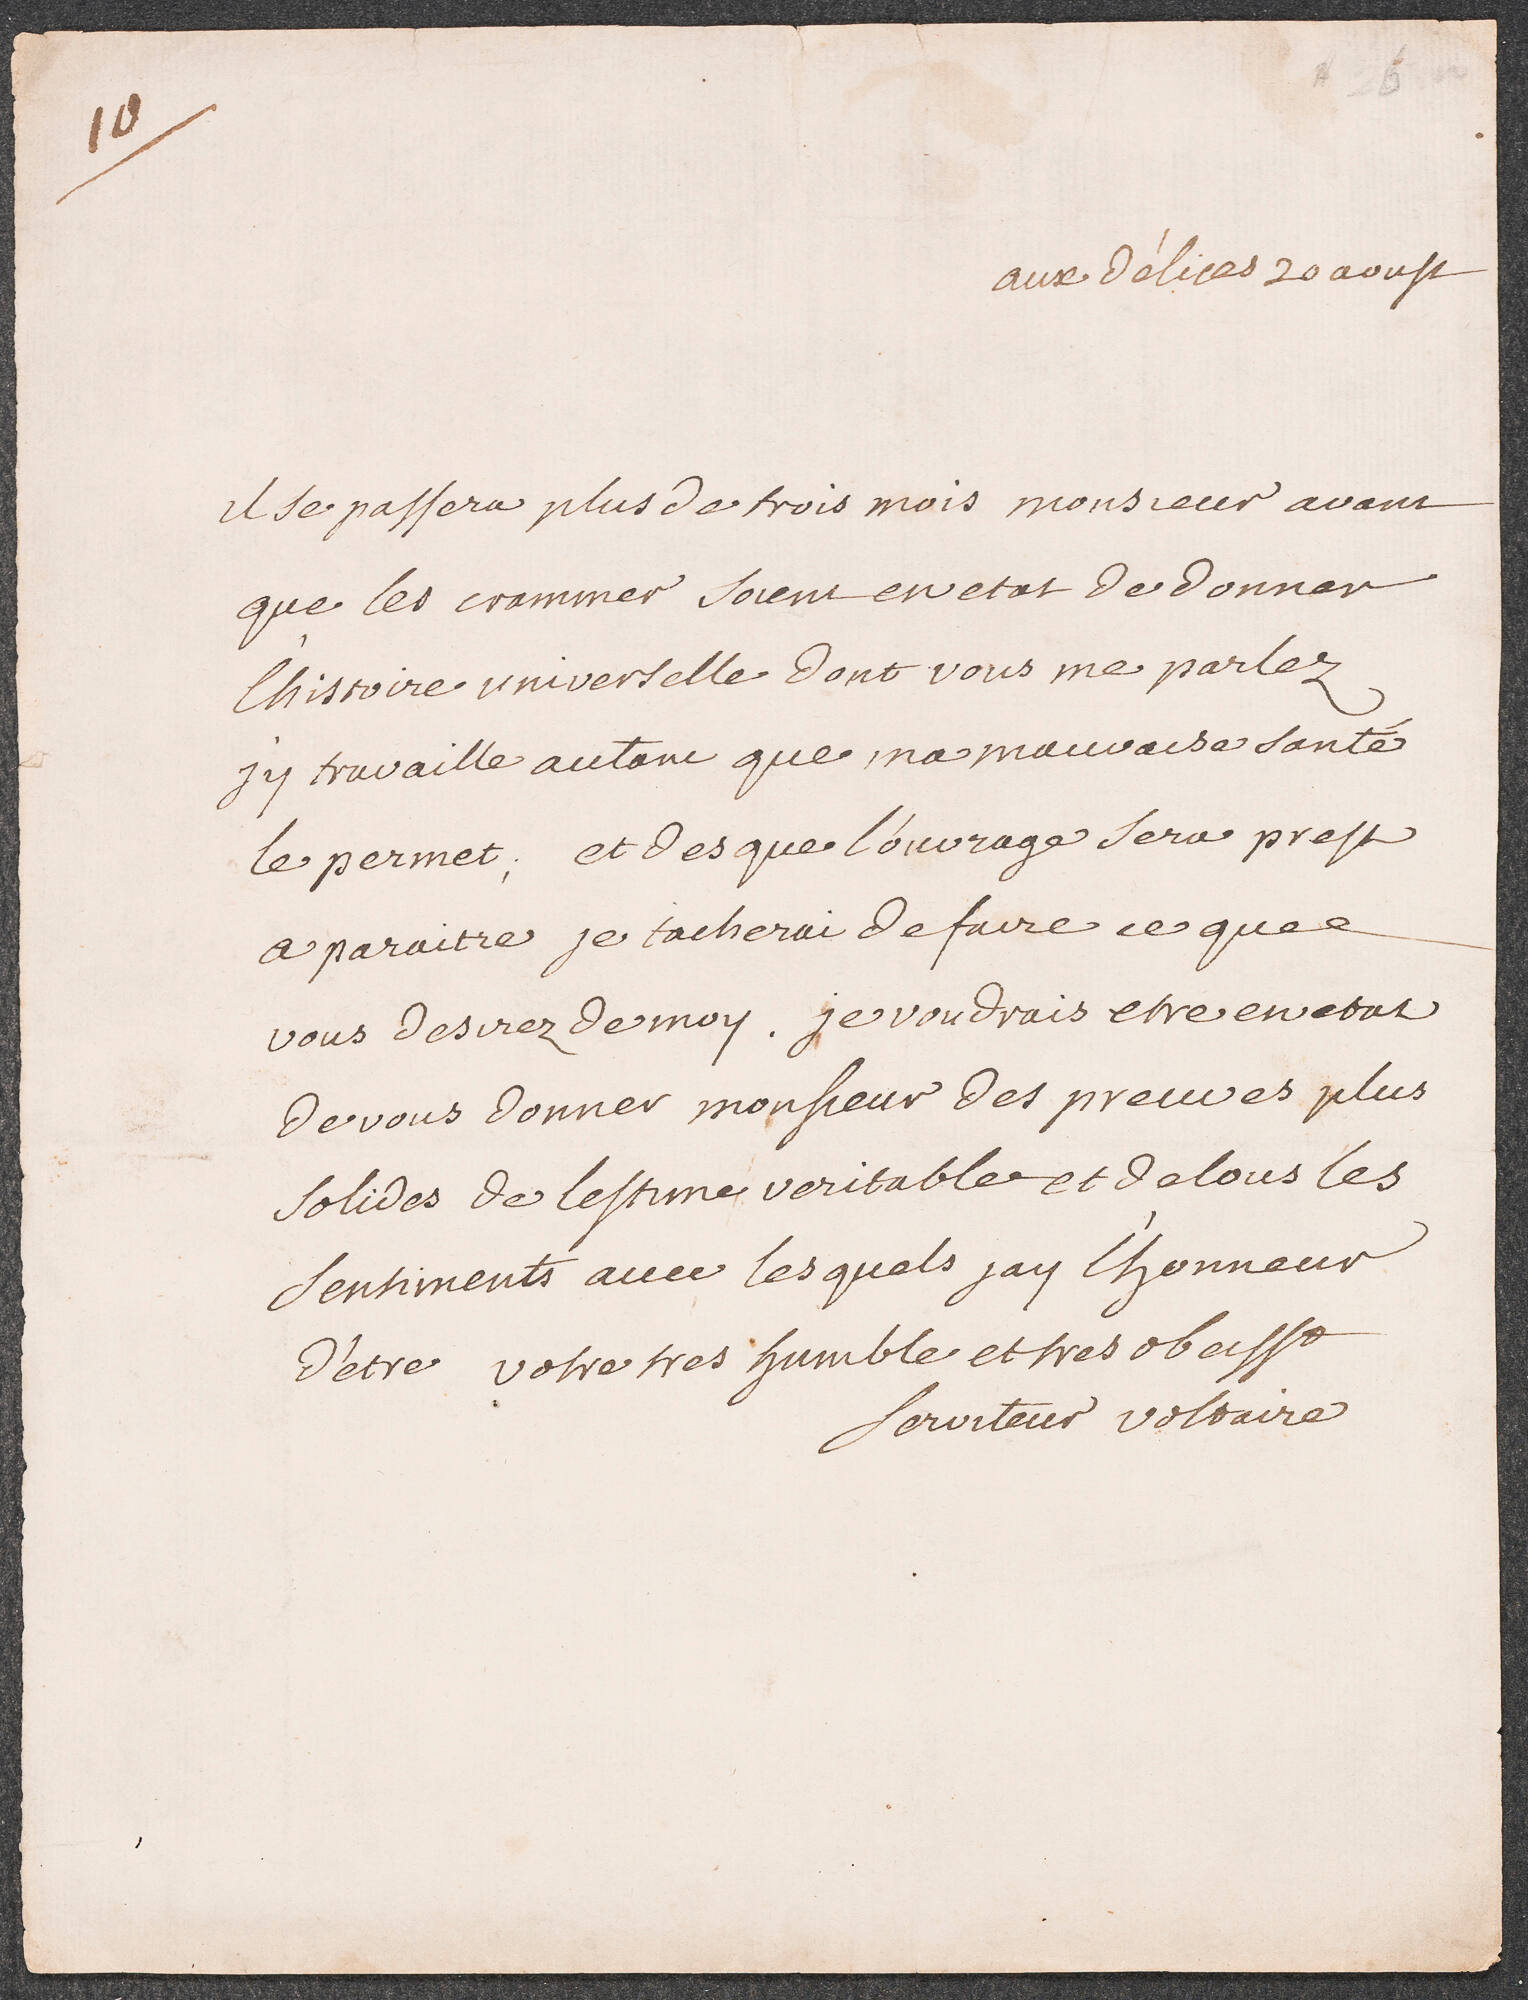 10
aux délices 20 aoust
il se passera plus de trois mois monsieur avant
que les crammer soient en etat de donner
l'histoire universelle dont vous me parlez
j'y travaille autant que ma mauvaise santé
le permet; et des que l'ouvrage sera prest
a paraitre je tacherai de faire ce que
vous desirez de moy. je voudrais etre en etat
de vous donner monsieur des preuves plus
solides de lestime veritable et de tous les
sentiments avec lesquels jay l'honneur
d'etre votre tres humble et tres obeisst
serviteur voltaire